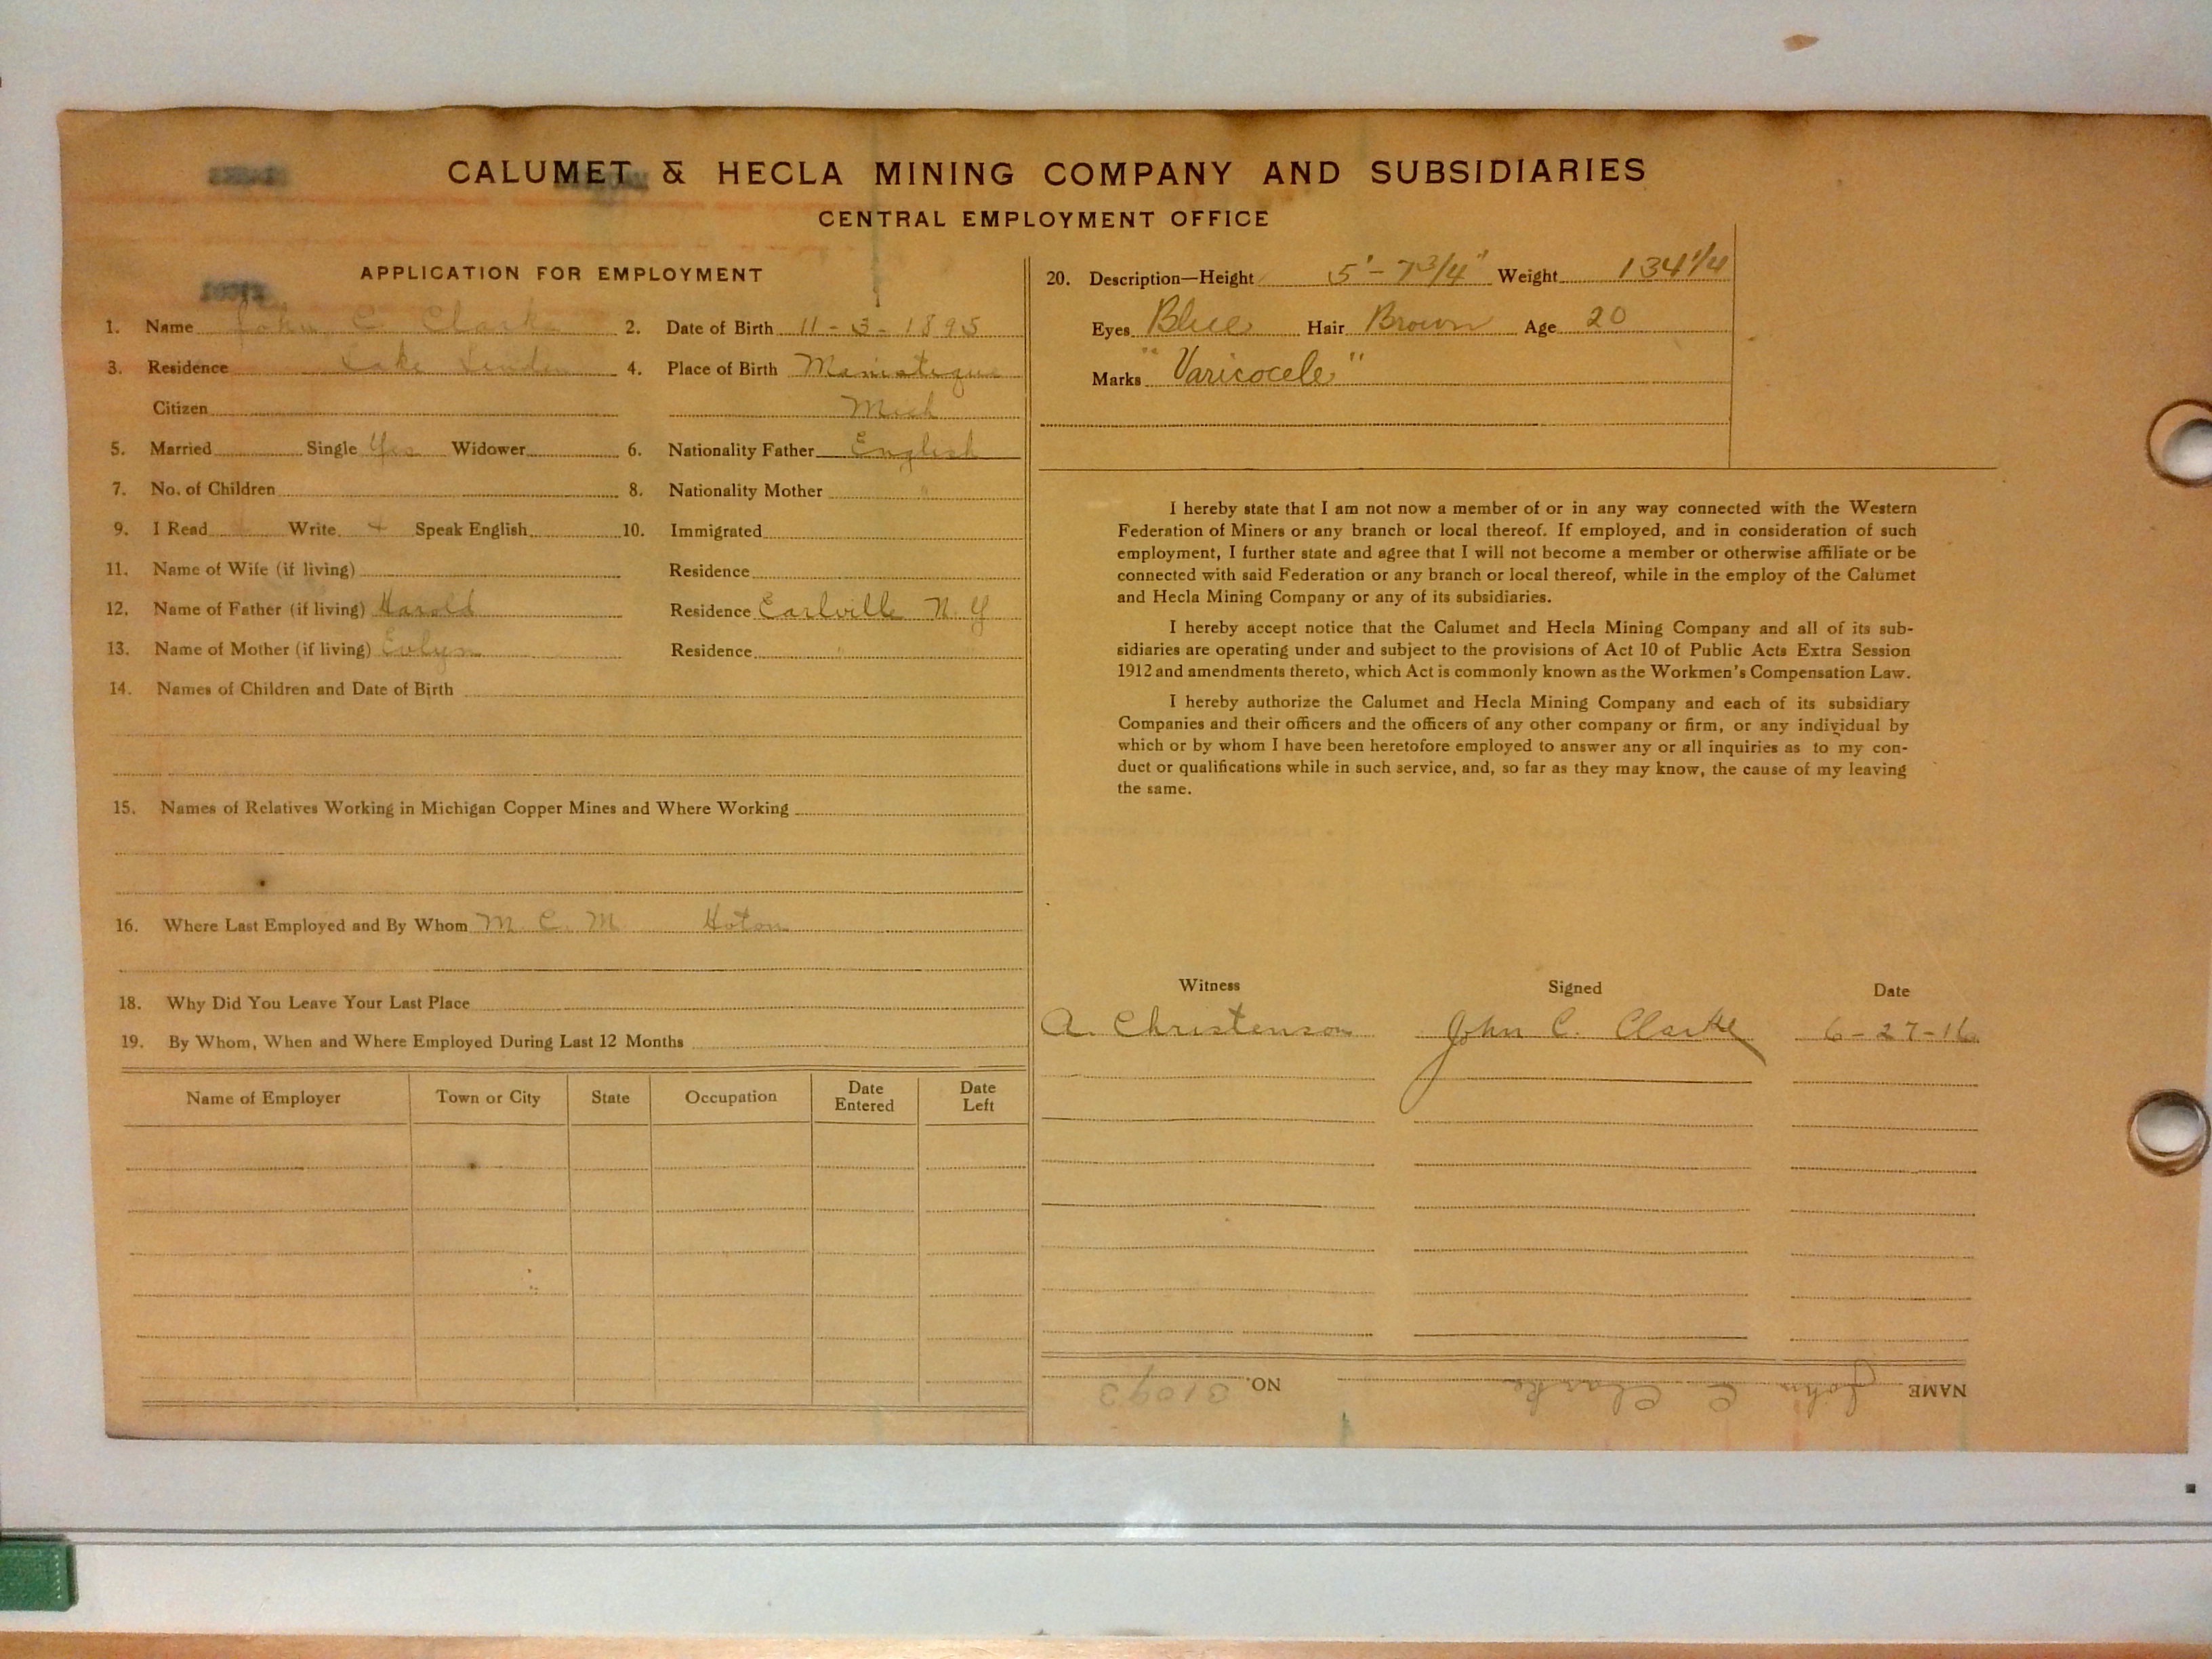 CALUMET & HECLA MINING COMPANY AND SUBSIDIARIES
CENTRAL EMPLOYMENT OFFICE
APPLICATION FOR EMPLOYMENT
1. Name John C. Clarke 2. Date of Birth 11-3-1895
3. Residence Lake Linden 4. Place of Birth Manistique
Citizen Mich
5. Married Single Yes Widower 6. Nationality Father English
7. No. of Children 8. Nationality Mother "
9. I Read Write Speak English 10. Immigrated
11. Name of Wife (if living) Residence
12. Name of Father (if living) Harold Residence Earlville N.Y
13. Name of Mother (if living) Evlyn Residence "
14. Names of Children and Date of Birth
15. Names of Relatives Working in Michigan Copper Mines and Where Working
16. Where Last Employed and By Whom M. C. M Hoton
18. Why Did You Leave Your Last Place
19. By Whom, When and Where Employed During Last 12 Months
Name of Employer Town or City State Occupation Date Entered Date Left
20. Description—Height 5'-7 3/4" Weight 134 1/4
Eyes Blue Hair Brown Age 20
Marks "Varicocele"
I hereby state that I am not now a member of or in any way connected with the Western
Federation of Miners or any branch or local thereof. If employed, and in consideration of such
employment, I further state and agree that I will not become a member or otherwise affiliate or be
connected with said Federation or any branch or local thereof, while in the employ of the Calumet
and Hecla Mining Company or any of its subsidiaries.
I hereby accept notice that the Calumet and Hecla Mining Company and all of its sub-
sidiaries are operating under and subject to the provisions of Act 10 of Public Acts Extra Session
1912 and amendments thereto, which Act is commonly known as the Workmen's Compensation Law.
I hereby authorize the Calumet and Hecla Mining Company and each of its subsidiary
Companies and their officers and the officers of any other company or firm, or any individual by
which or by whom I have been heretofore employed to answer any or all inquiries as to my con-
duct or qualifications while in such service, and, so far as they may know, the cause of my leaving
the same.
Witness Signed Date
A. Christenson John C. Clarke 6-27-16
NAME John C Clarke NO. 31093